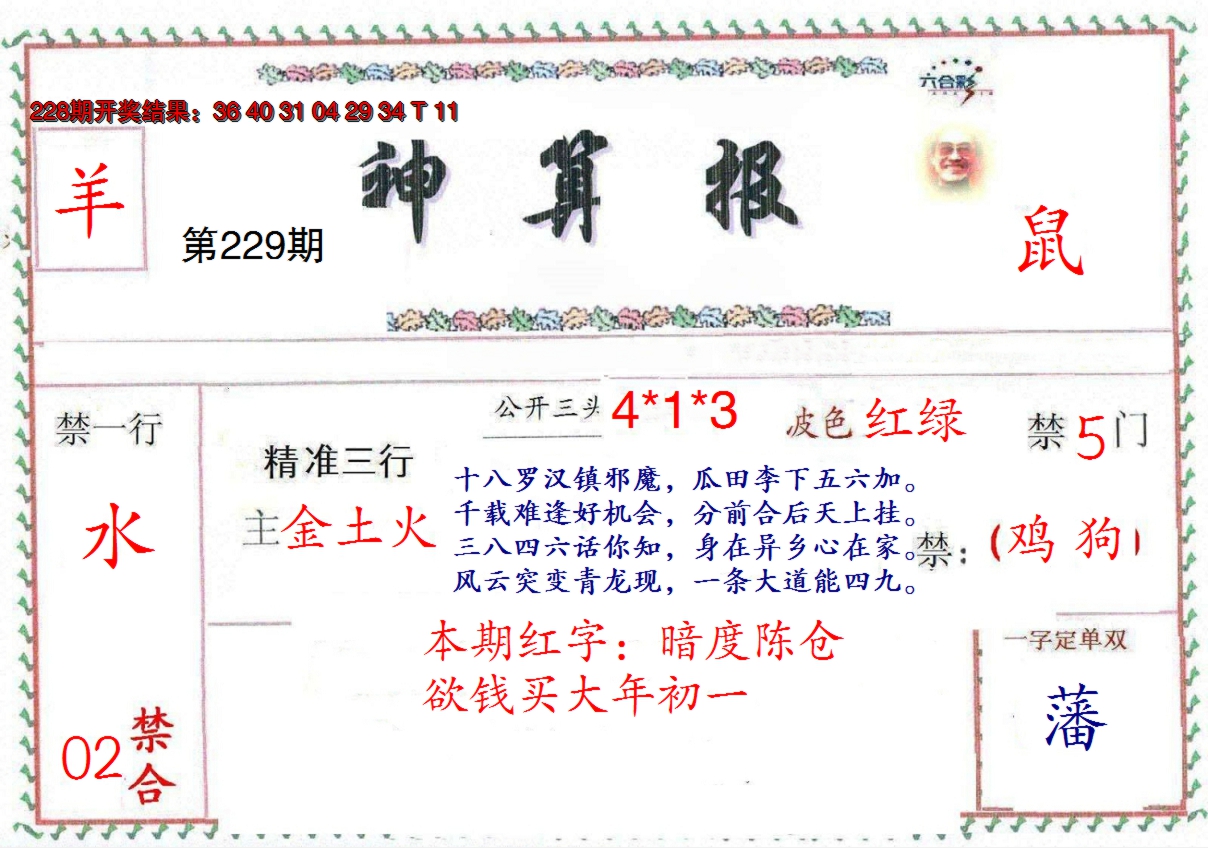 六合彩
228期开奖结果：36 40 31 04 29 34 T 11
羊
神算报
第229期
鼠
禁一行
水
02
禁合
精准三行
主金土火
公开三头 4*1*3
波色 红绿
禁5门
十八罗汉镇邪魔，瓜田李下五六加。
千载难逢好机会，分前合后天上挂。
三八四六话你知，身在异乡心在家。
风云突变青龙现，一条大道能四九。
禁：（鸡 狗）
本期红字：暗度陈仓
欲钱买大年初一
一字定单双
藩